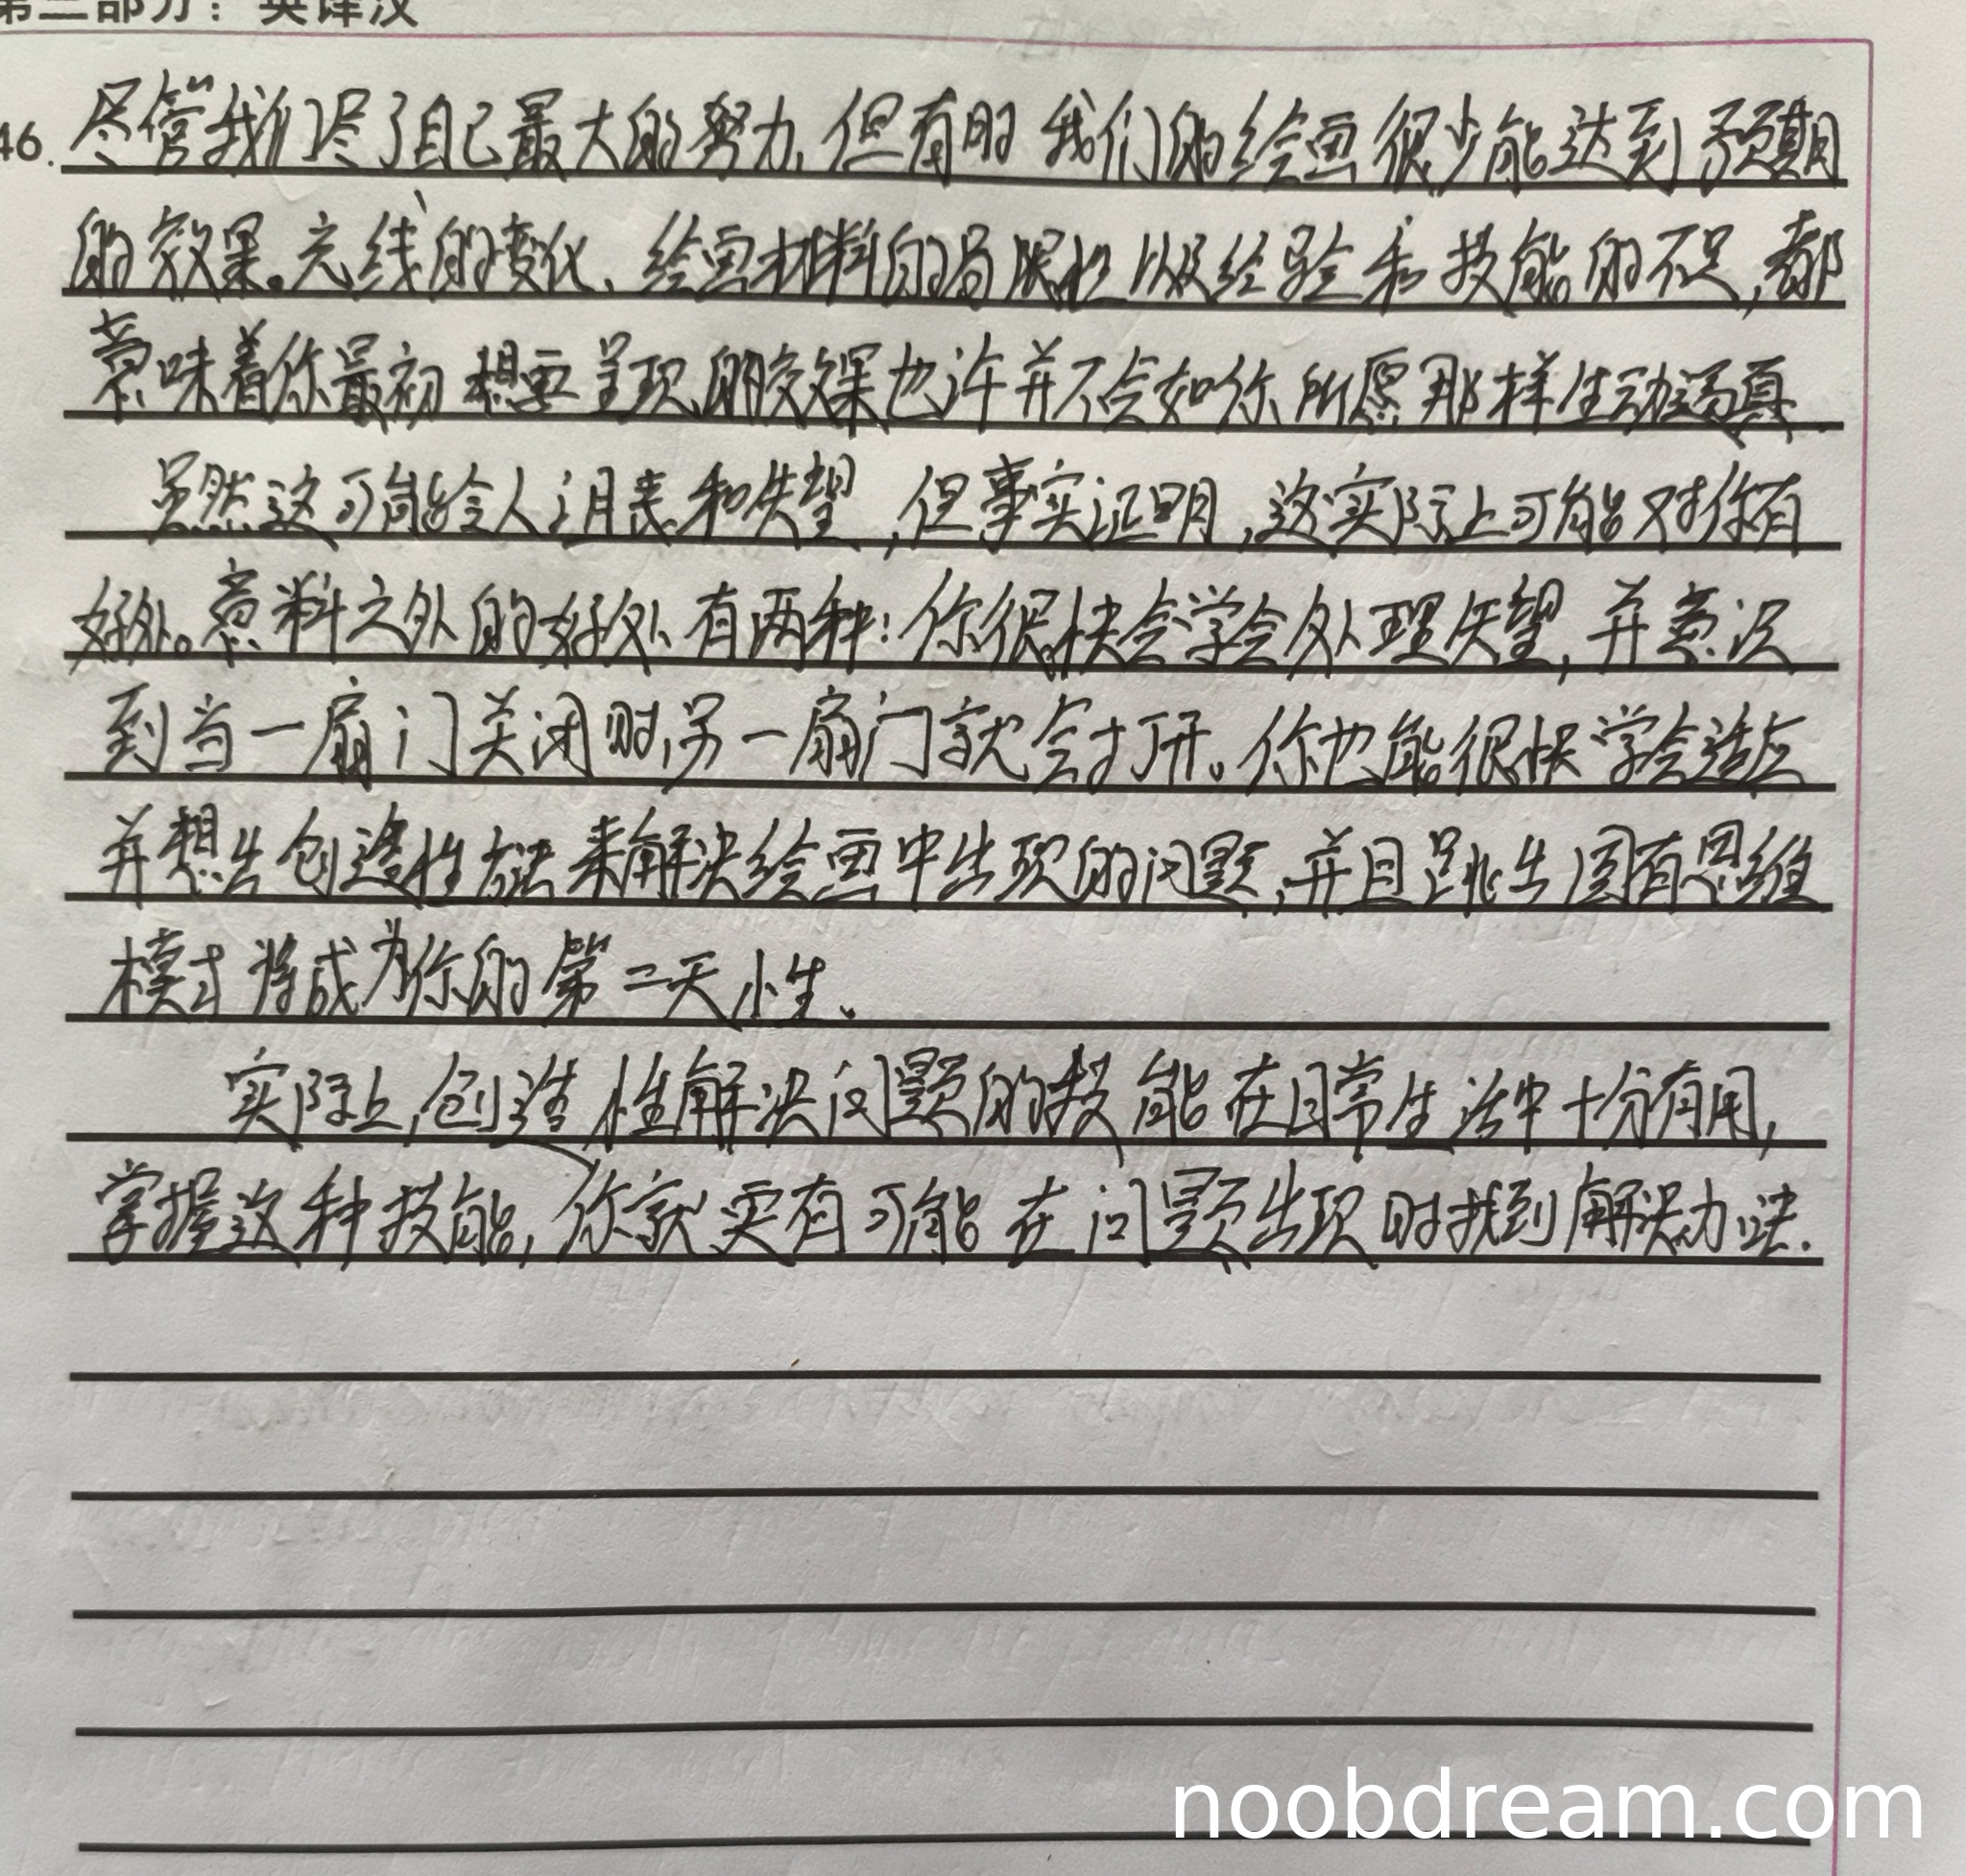 第三部分：英译汉
46. 尽管我们尽了自己最大的努力,但有时我们的绘画很少能达到预期
的效果。光线的变化、绘画材料的局限性以及经验和技能的不足,都
意味着你最初想要呈现的效果也许并不会如你所愿那样生动逼真.
虽然这可能令人沮丧和失望,但事实证明,这实际上可能对你有
好处。意料之外的好处有两种:你很快会学会处理失望,并意识
到当一扇门关闭时,另一扇门就会打开。你也能很快学会适应
并想出创造性方法来解决绘画中出现的问题,并且跳出固有思维
模式将成为你的第二天性、
实际上,创造性解决问题的技能在日常生活中十分有用,
掌握这种技能,你就更有可能在问题出现时找到解决办法.
noobdream.com